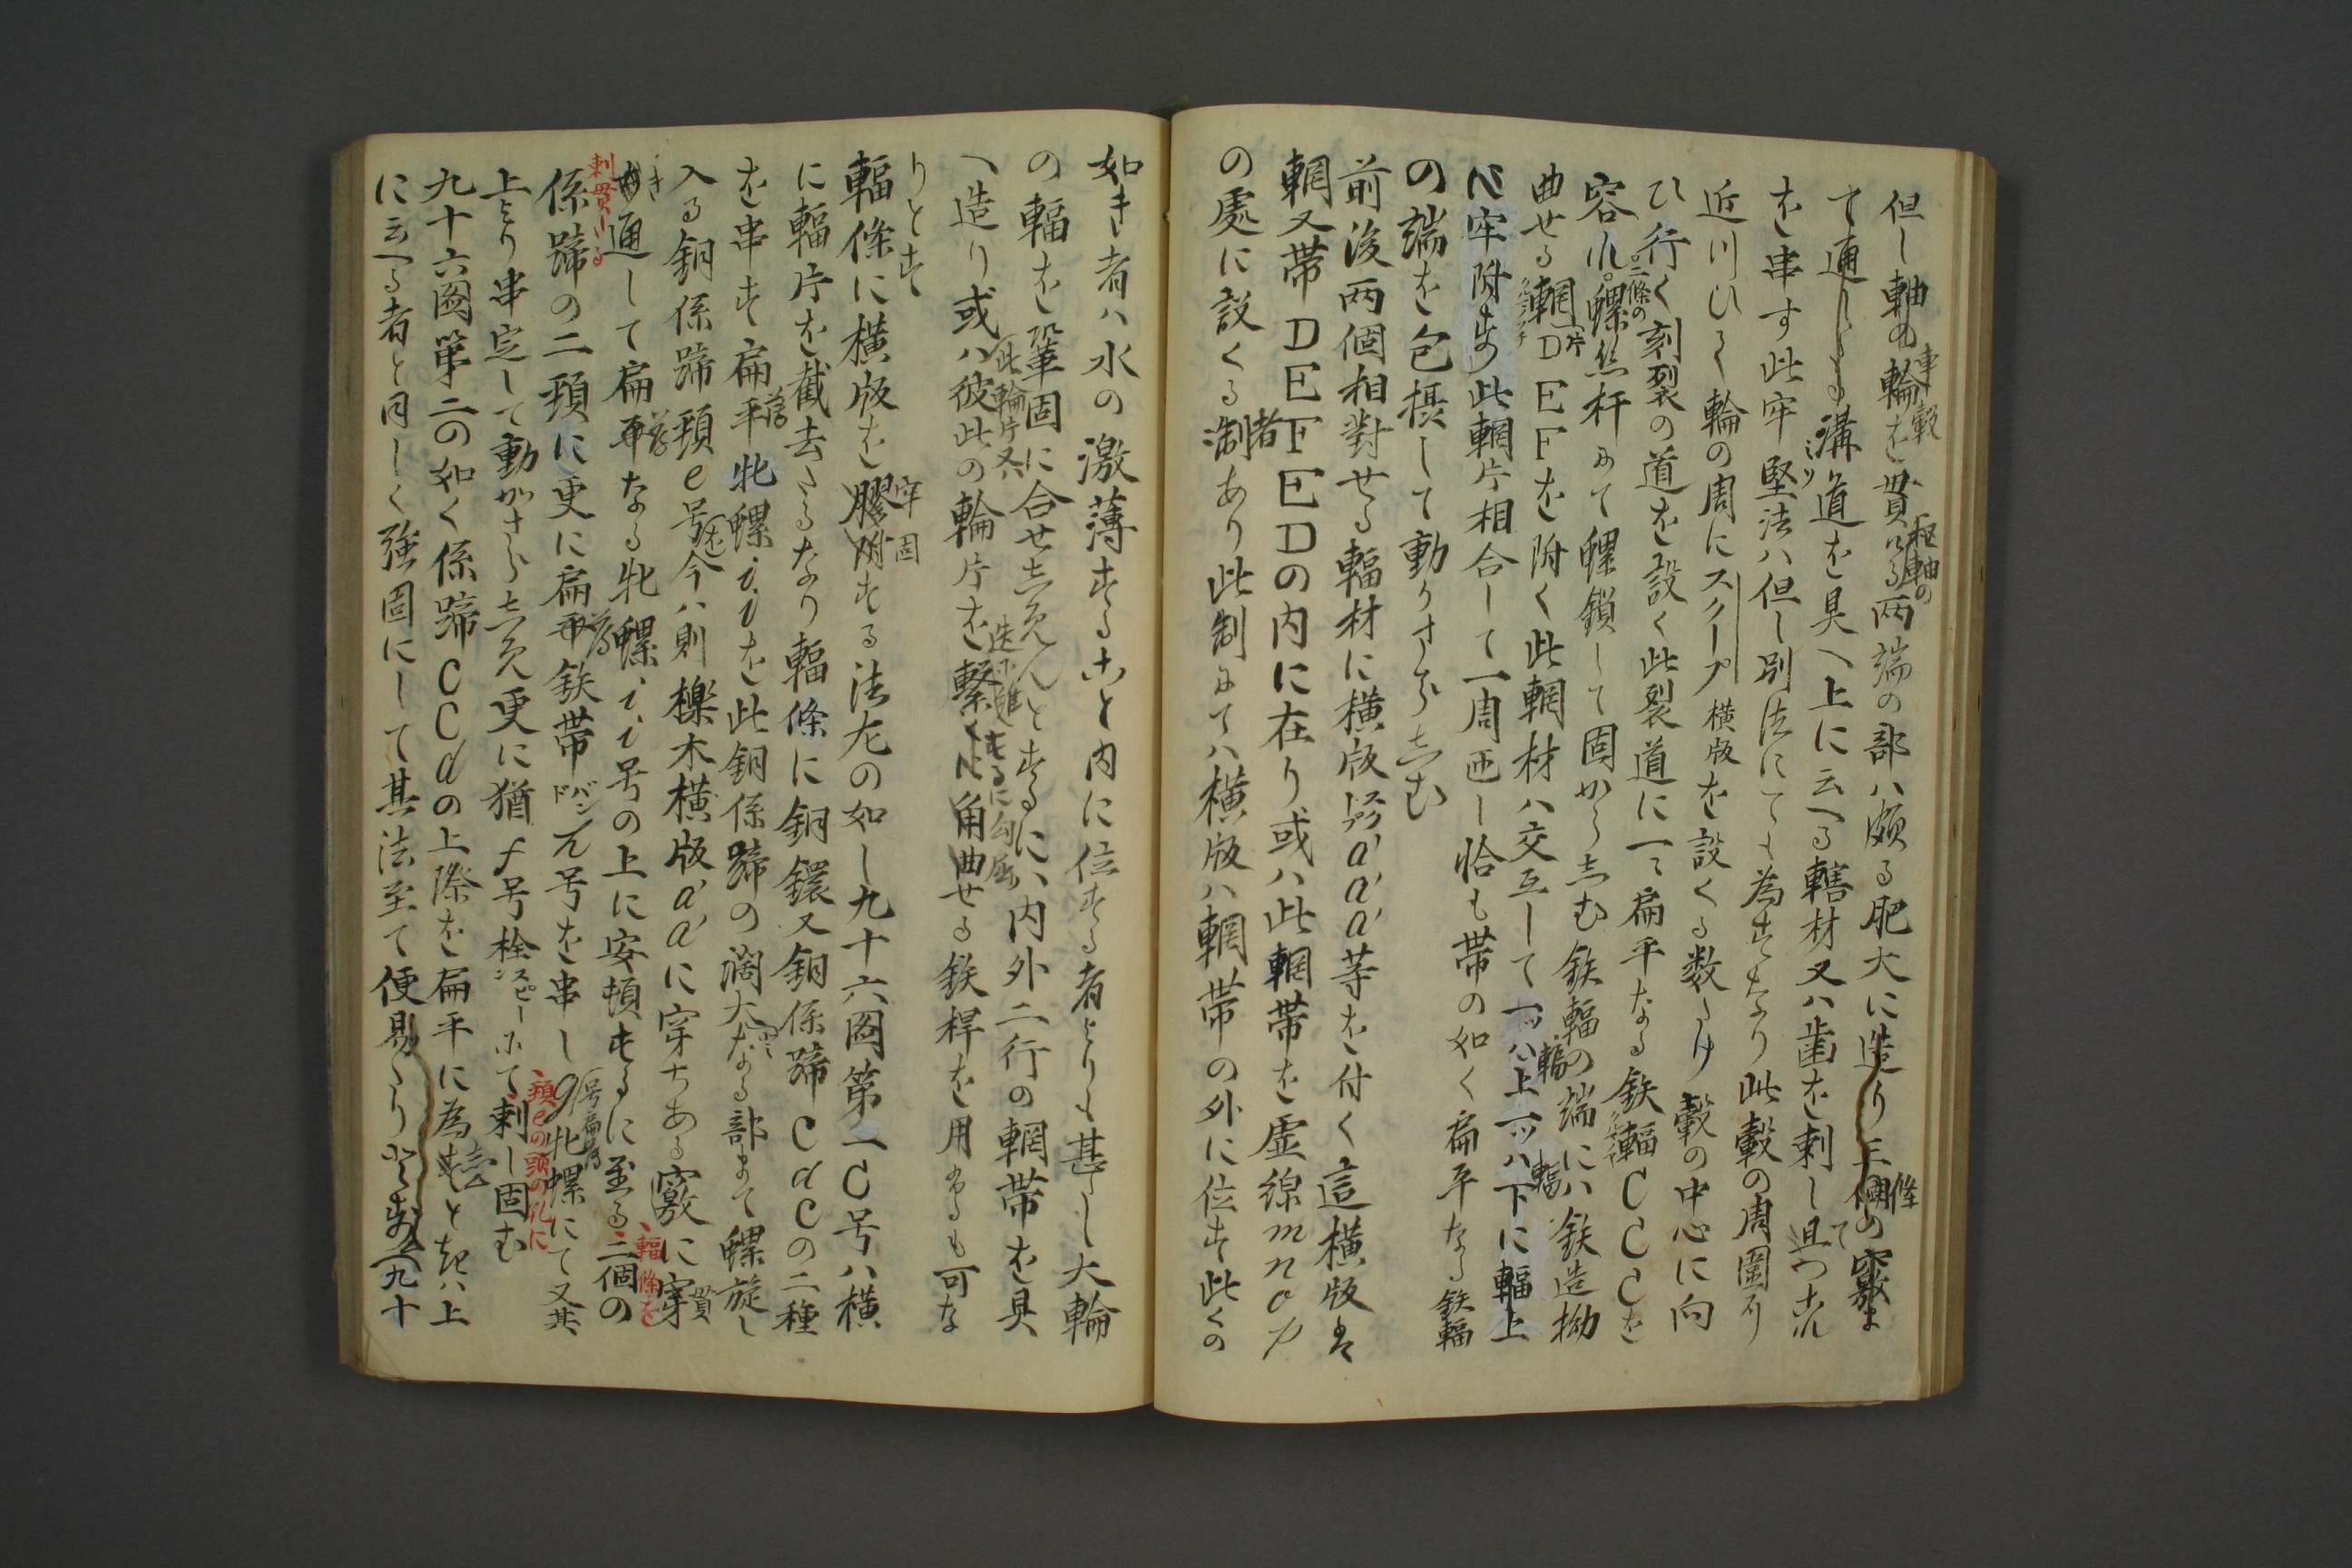 但し軸の輪を貫ける両端の部ハ頗る肥大に造り三個の竅ま
車轂
枢軸の
條
て通したる溝道を具へ上に云へる轄材又ハ歯を刺し且つ之れ
ミゾ
を串す此牢堅法ハ但し別法にても為すなり此轂の周囲に
近川ひく輪の周にスクープ横版を設くる数たけ轂の中心に向
ひ行く刻裂の道を設く此裂道に一々扁平なる鉄輻CCCを
容れ螺糸杆にて螺鎖して固からしむ鉄輻の端にハ鉄造拗
二條の
曲せる輞DEEFを附く此輞材ハ交互して一ツハ上一ツハ下に輻上
片
輻
輻
に牢附す此輞片相合して一周匝し恰も帯の如く扁平なる鉄輻
の端を包摂して動かさらしむ
前後両個相對せる輻材に横版a'a'a'等を付く這横版は
輞又帯DEFEDの内に在り或ハ此輞帯を虚線mnop
の處に設くる制あり此制にてハ横版ハ輞帯の外に位す此くの
者
如き者ハ水の激薄すること内に位する者よりも甚しし大輪
の輻を鞏固に合せしめんとするにハ内外二行の輞帯を具
へ造り或ハ彼此の輪片を繋くに角曲せる鉄桿を用ゆるも可な
此輪片又ハ
りとす
輻條に横版を膠附する法左の如し九十六図第一C号ハ横
牢固
に輻片を截去たるなり輻條に銅鐶又銅係蹄CdCの二種
を串す扁平牝螺i,iを此銅係蹄の濶大なる部まて螺旋し
入る銅係蹄頚e号今ハ則櫟木横版a'a'に穿ちある竅に穿
貫
き通して扁平なる牝螺i,i号の上に安頓するに至る二個の
輻條を
刺貫ける
係蹄の二頚に更に扁平鉄帯バンド兀号を串しg牝螺にて又其
号扁平
上より串定して動かさらしめ更に猶f号栓スピーンにて刺し固む
頚eの頭の孔に
九十六図第二の如く係蹄CCdの上際を扁平に為すときハ上
に云へる者と同しく強固にして其法至て便易たりとす九十